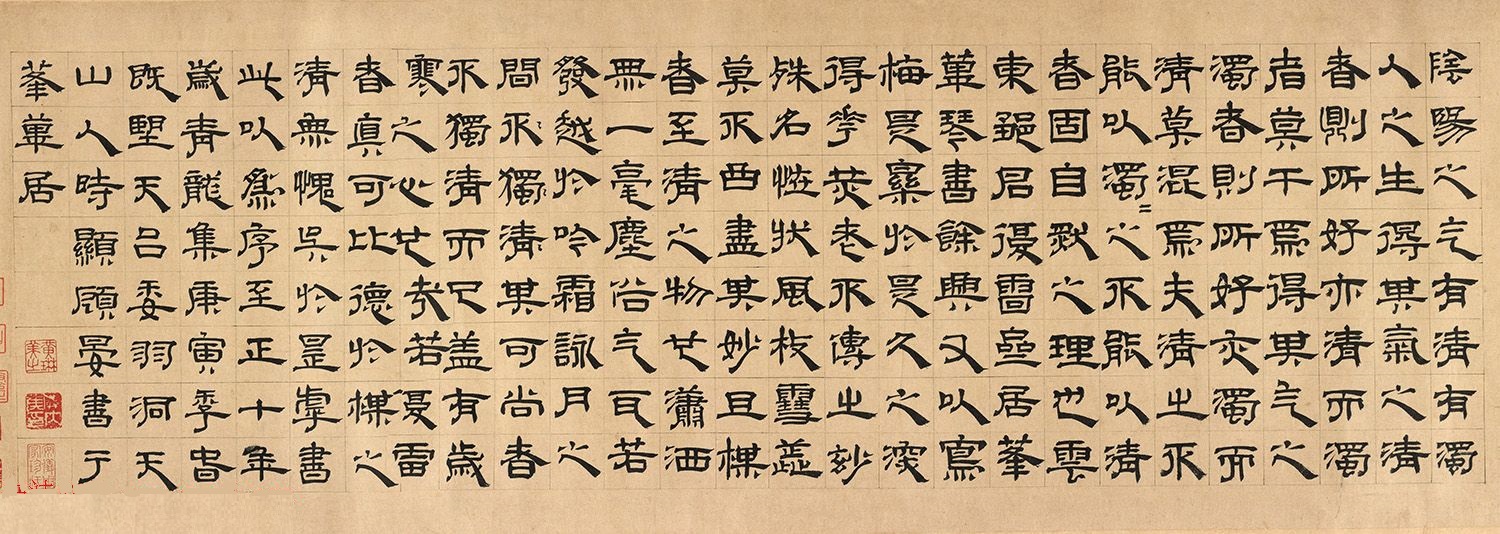 陰陽之气有清有濁
人之生得其氣之清
者則所好亦清而濁
者莫干焉得其气之
濁者則所好亦濁而
清莫混焉夫清之不
能以濁〻之不能以清
者固自然之理也雲
東君復居峯
蓽琴書餘興又以寫
梅是於是久之深
得華光老不傳之妙
殊名恠狀風枝雪蕋
莫不曲盡其妙且楳
者至清之物也瀟洒
無一毫塵俗气若
發越於吟霜詠月之
間不獨清其可尚者
不獨清而已盖有歲
寒之心也哉若
者真可比德於楳之
清無愧矣於是乎書
此以為序至正十年
歲青龍集庚寅季春
既朢天台委羽洞天
山人時顯顧晏書于
峯蓽居